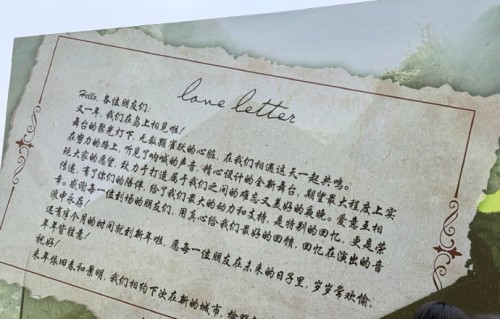 love letter
Hello, 各位朋友们:
又一年,我们在岛上相见啦!
舞台的聚光灯下,无数颗雀跃的心脏,在我们相遇这天一起共鸣。
在努力的路上,听见了呐喊的声音,精心设计的全新舞台,期望最大程度上实
现大家的愿望,致力于打造属于我们之间的难忘又美好的夜晚。爱意互相
传递,有了你们的陪伴,给了我们最大的动力和支持,是特别的回忆,更是荣
幸。感谢每一位到场的朋友们,用真心给我们最好的回馈,回忆在演出的音
浪中永存!
还有 个月的时间就到新年啦,愿每一位朋友在未来的日子里,岁岁常欢愉,
年年皆胜意!
祝好!
来年依旧春和景明,我们相约下次在新的城市,